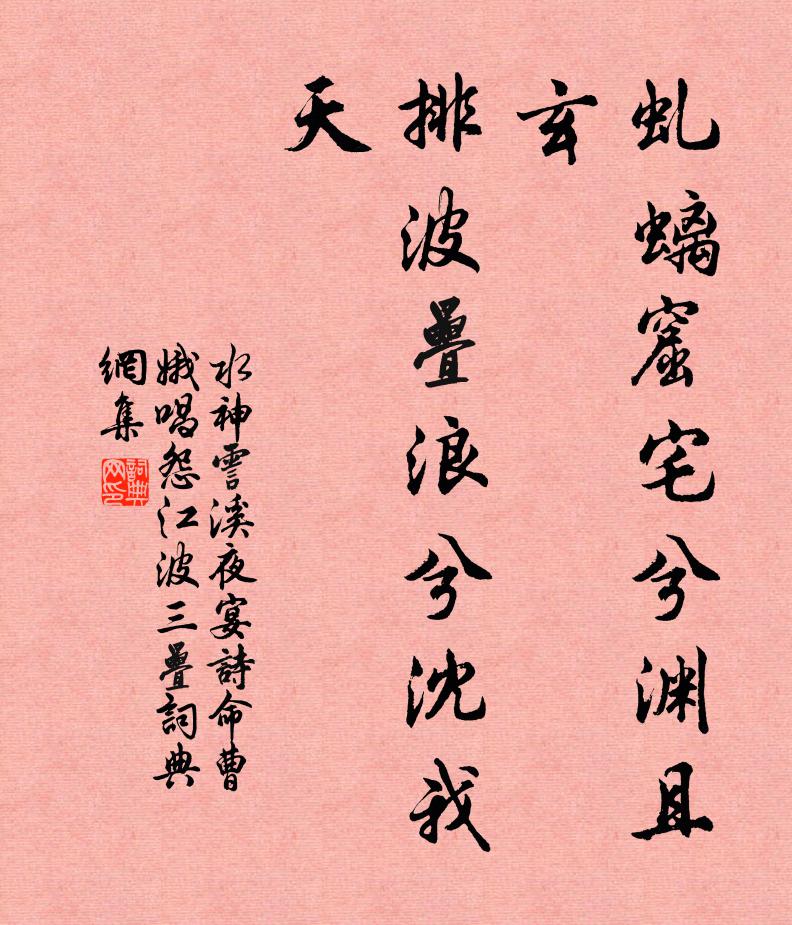 虬螭窟宅兮渊且
玄
排波疊浪兮沈我
天
水神霅溪夜宴詩命曹
娥唱怨江波三疊詞典
網集
詞典
网印